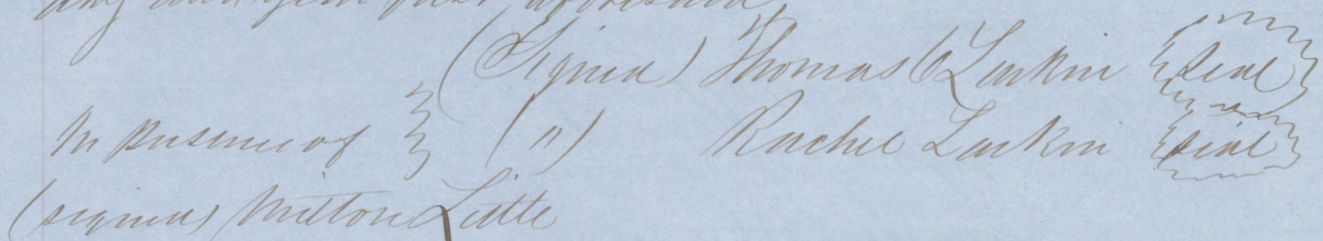 day and year first aforesaid
(Signed) Thomas O Larkin {seal}
In presence of } (") Rachel Larkin {seal}
(signed) Milton Little